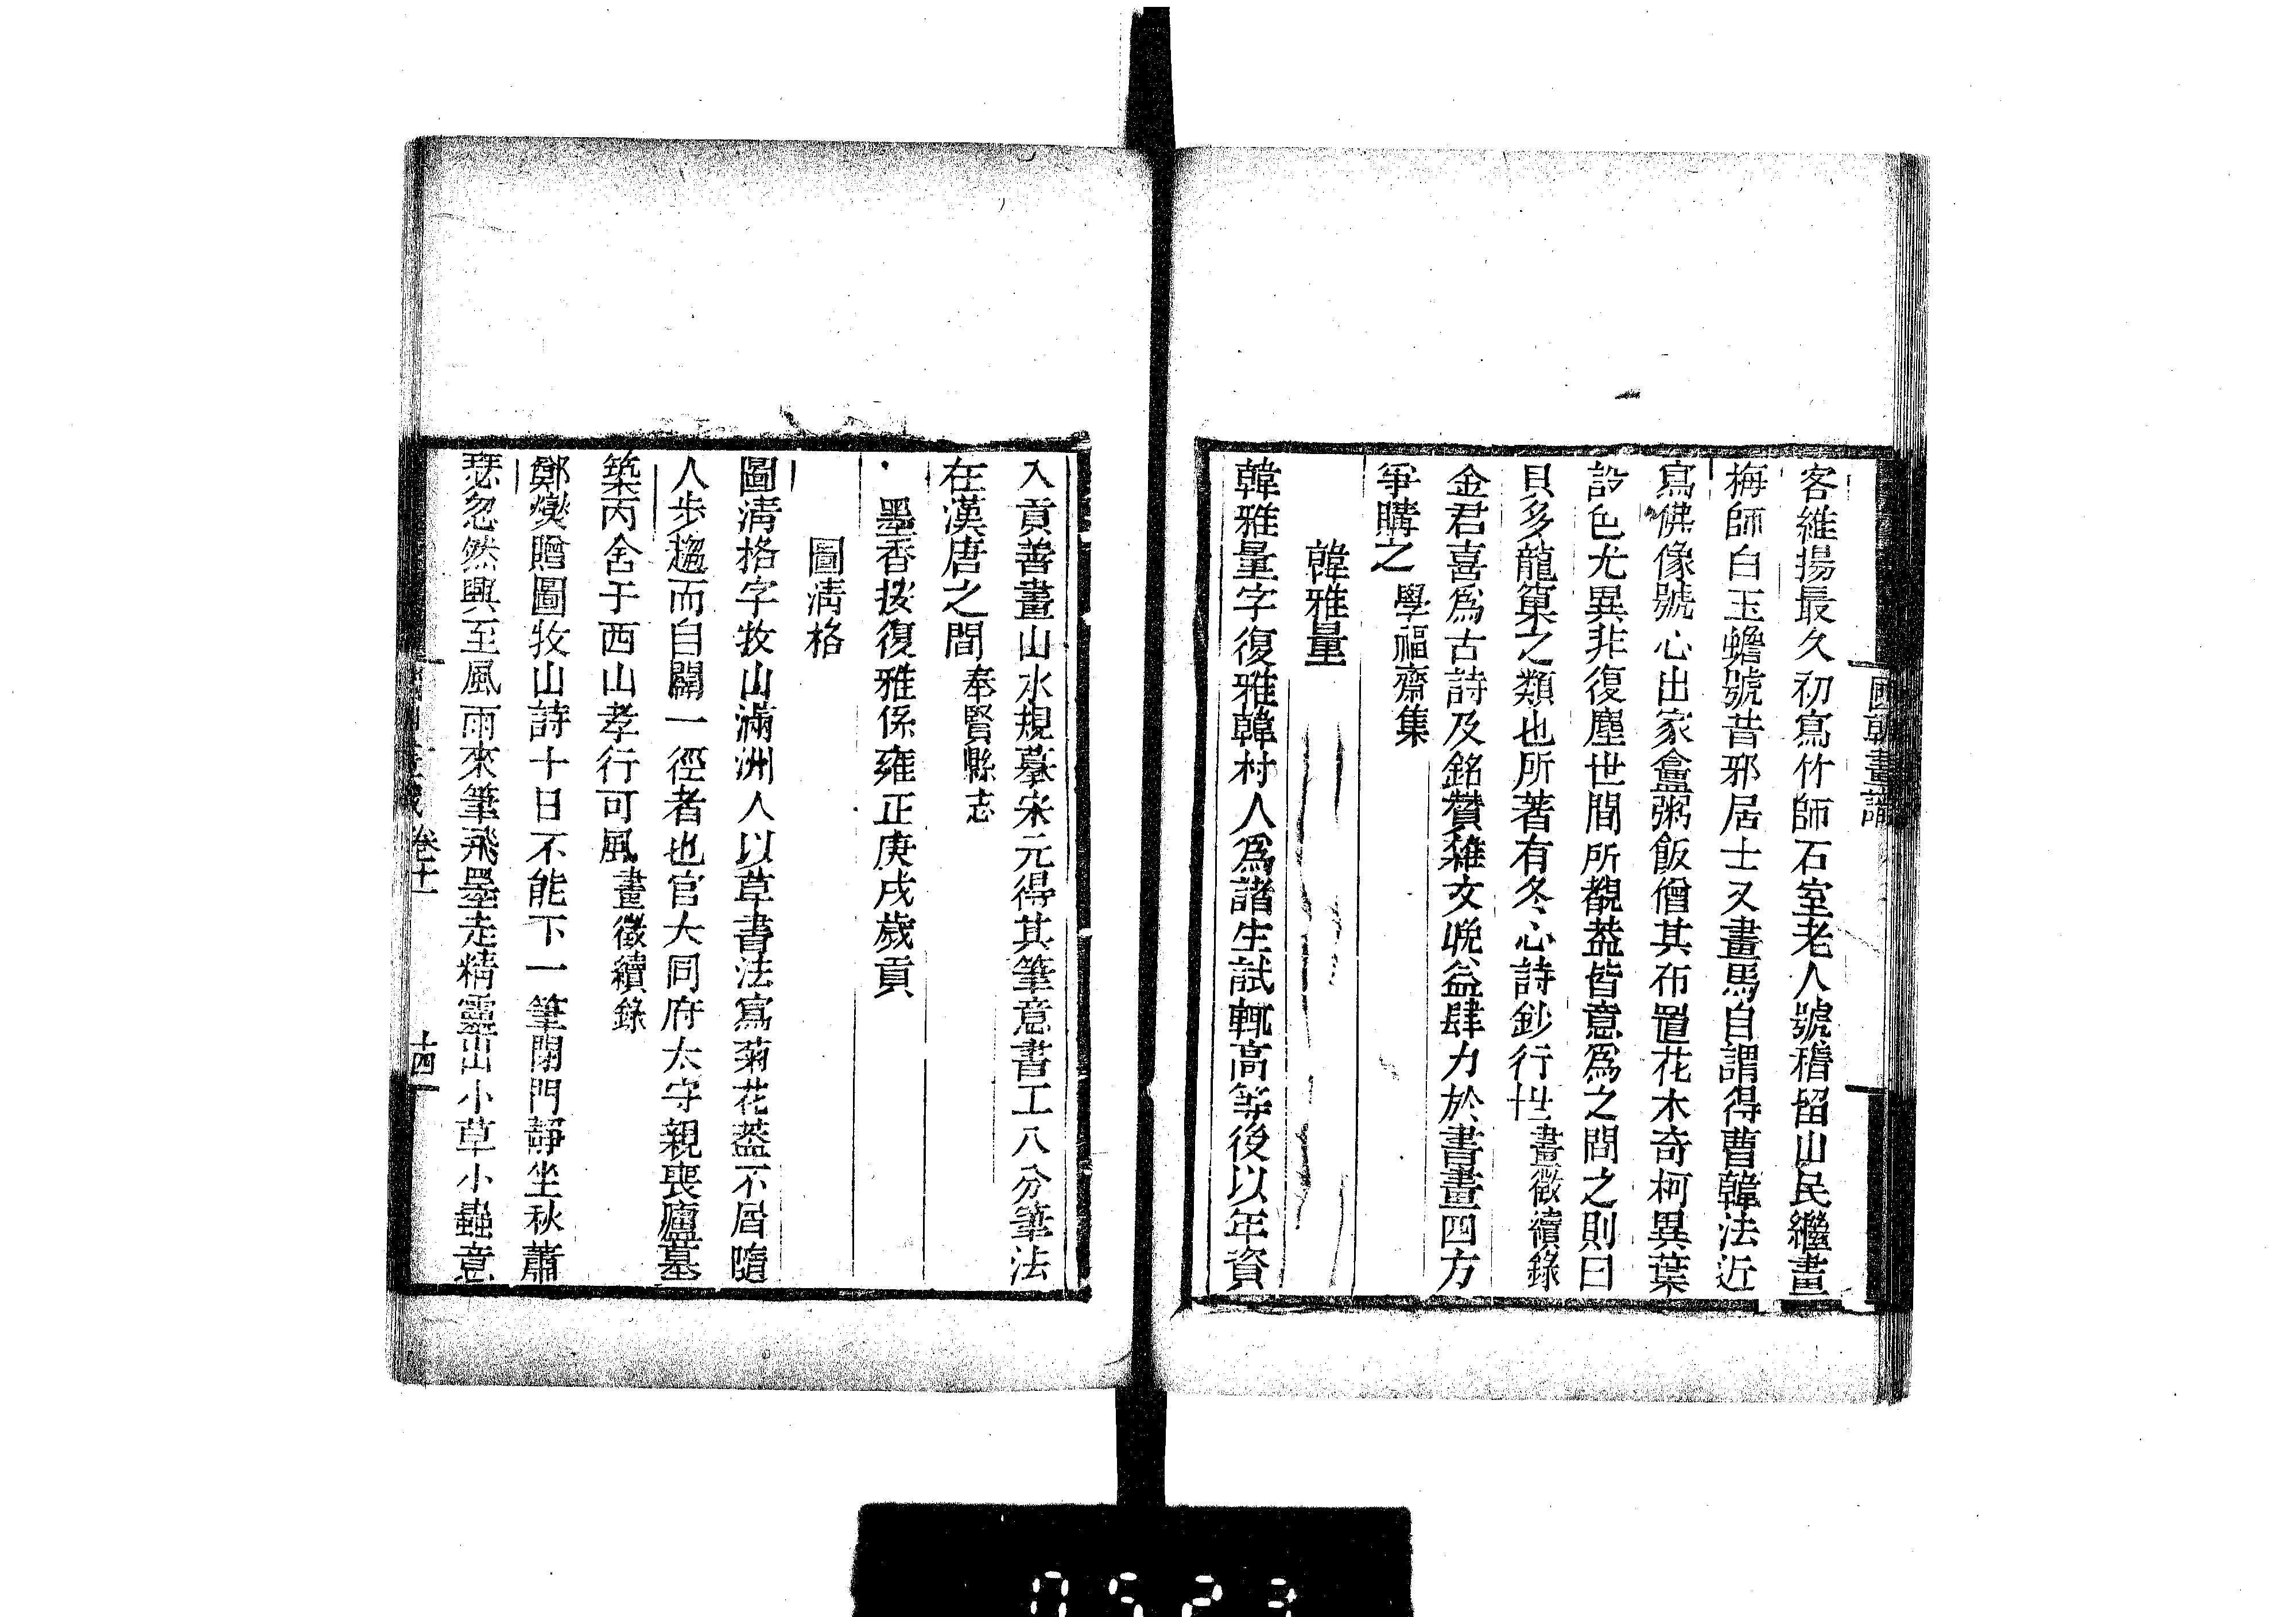 客維揚最久初寫竹師石室老人號稽留山民繼畫
梅師白玉蟾號昔邪居士又畫馬自謂得曹韓法近
寫佛像號心出家盦粥飯僧其布置花木奇柯異葉
設色尤異非復塵世間所覩葢皆意爲之問之則曰
貝多龍窠之類也所著有冬心詩鈔行世畫徵續錄
金君喜爲古詩及銘贊雜文晚益肆力於書畫四方
爭購之學福齋集
韓雅量
韓雅量字復雅韓村人爲諸生試輒高等後以年資
入貢善畫山水規摹宋元得其筆意書工八分筆法
在漢唐之間奉賢縣志
墨香按復雅係雍正庚戌歲貢
圖清格
圖清格字牧山滿洲人以草書法寫菊花葢不屑隨
人步趨而自闢一徑者也官大同府太守親喪廬墓
築丙舍于西山孝行可風畫徵續錄
鄭燮贈圖牧山詩十日不能下一筆閉門靜坐秋蕭
瑟忽然興至風雨來筆飛墨走精靈出小草小蟲意
卷十一
十四
0523